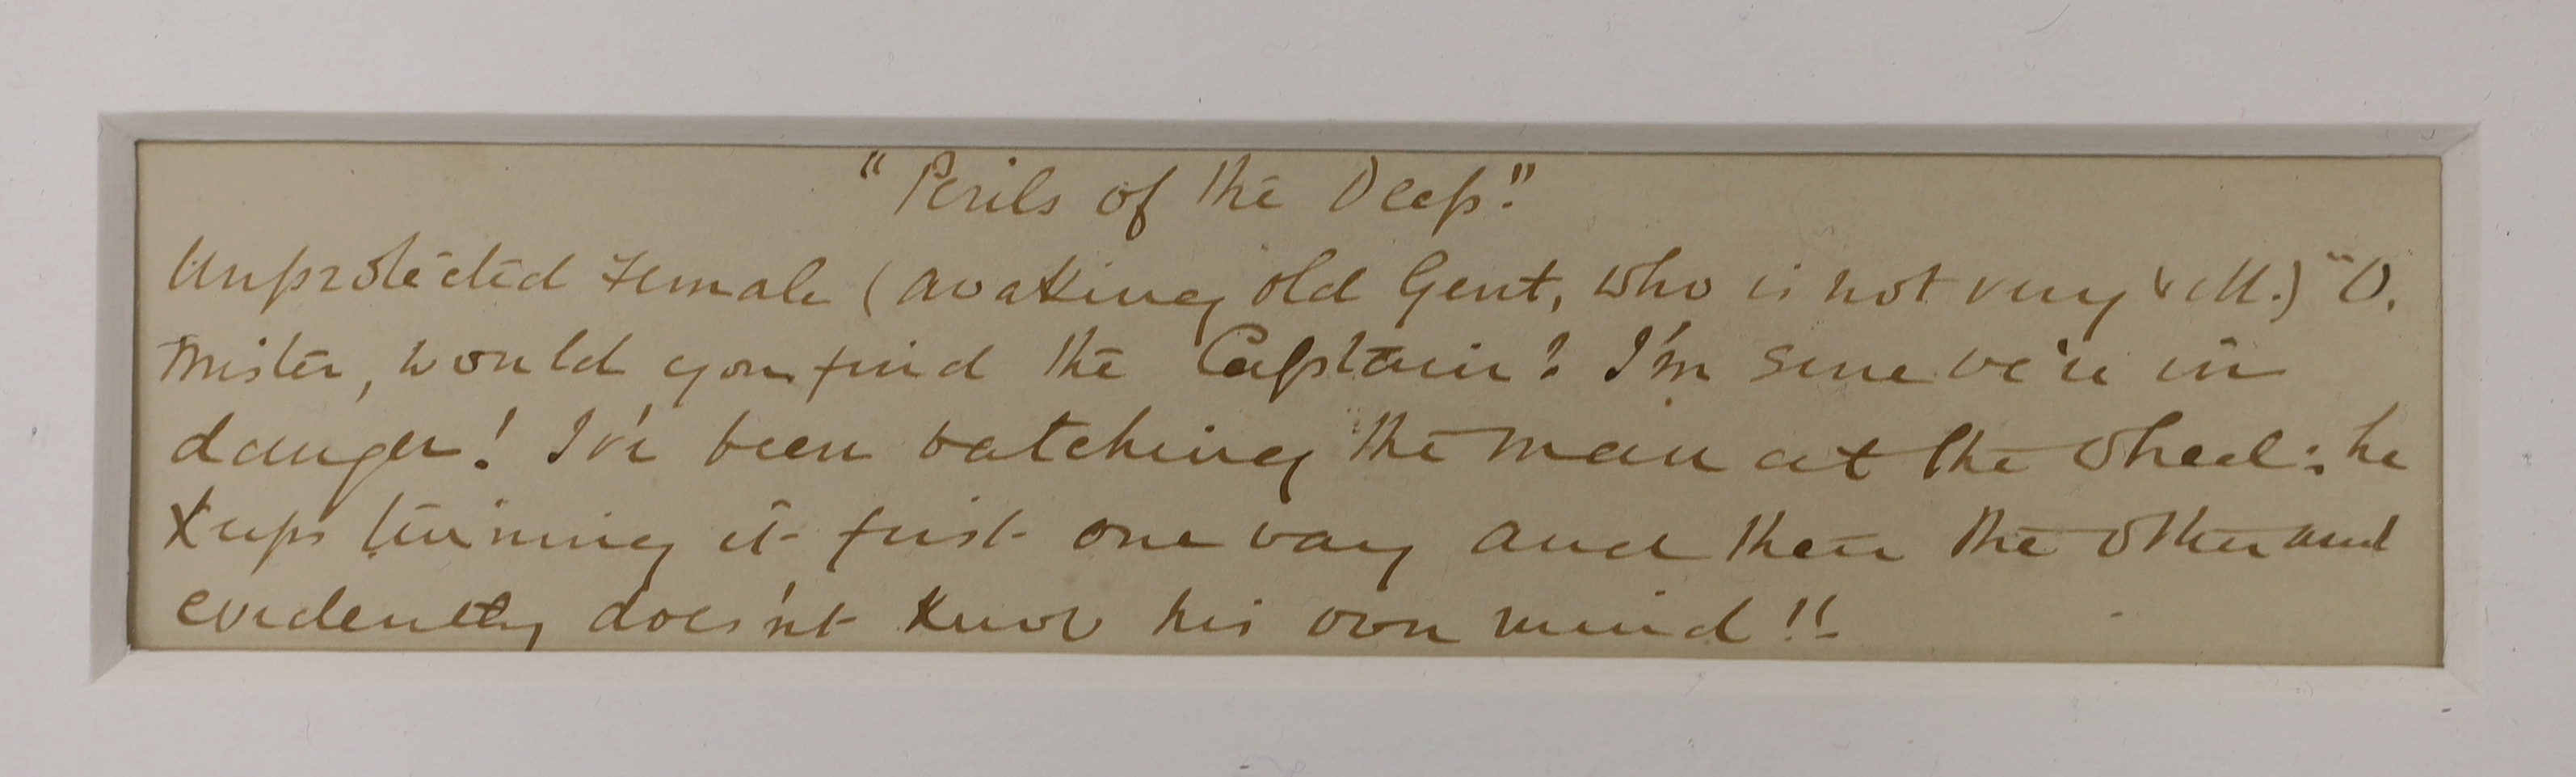 "Perils of the Deep."
Unprotected Female (awaking old Gent, who is not very well.) "O,
Mister, would you find the Captain? I'm sure we're in
danger! I've been watching the man at the wheel: he
keeps turning it first one way and then the other and
evidently doesn't know his own mind!!